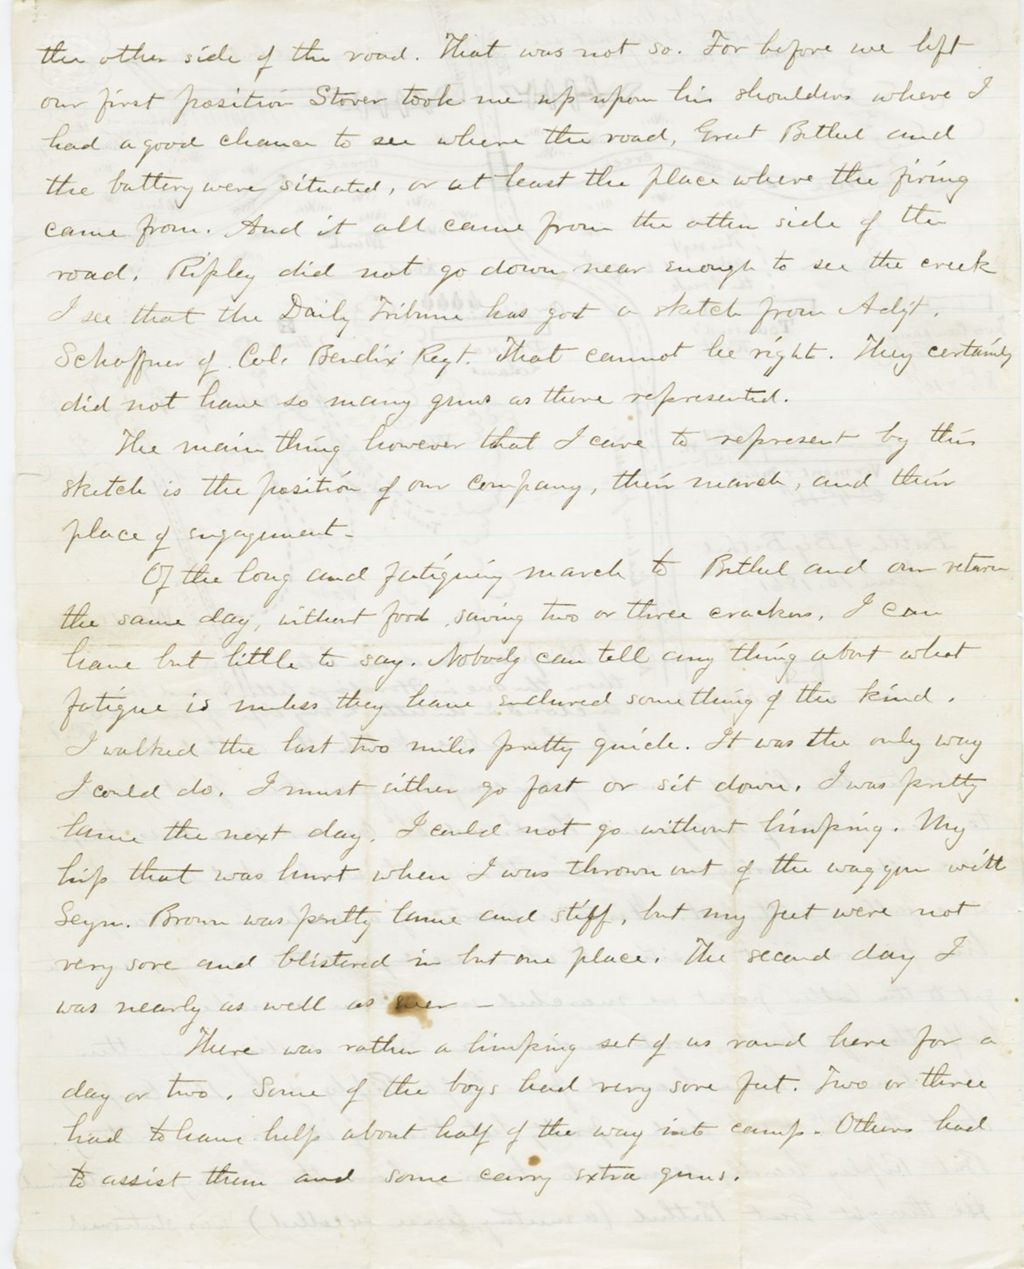 the other side of the road. That was not so. For before we left
our first position Stover took me up upon his shoulders where I
had a good chance to see where the road, Great Bethel and
the battery were situated, or at least the place where the firing
came from. And it all came from the other side of the
road. Ripley did not go down near enough to see the creek
I see that the Daily Tribune has got a sketch from Adjt.
Schaffner of Col. Bendix Regt. That cannot be right. They certainly
did not have so many guns as there represented.
The main thing however that I care to represent by this
sketch is the position of our company, their march, and their
place of engagement -
Of the long and fatiguing march to Bethel and our return
the same day, without food, saving two or three crackers, I can
have but little to say. Nobody can tell any thing about what
fatigue is unless they have endured something of the kind.
I walked the last two miles pretty quick. It was the only way
I could do. I must either go fast or sit down. I was pretty
lame the next day. I could not go without limping. My
hip that was hurt when I was thrown out of the waggon with
Seym. Brown was pretty lame and stiff, but my feet were not
very sore and blistered in but one place. The second day I
was nearly as well as ever -
There was rather a limping set of us round here for a
day or two. Some of the boys had very sore feet. Two or three
had to have help about half of the way into camp. Others had
to assist them and some carry extra guns.